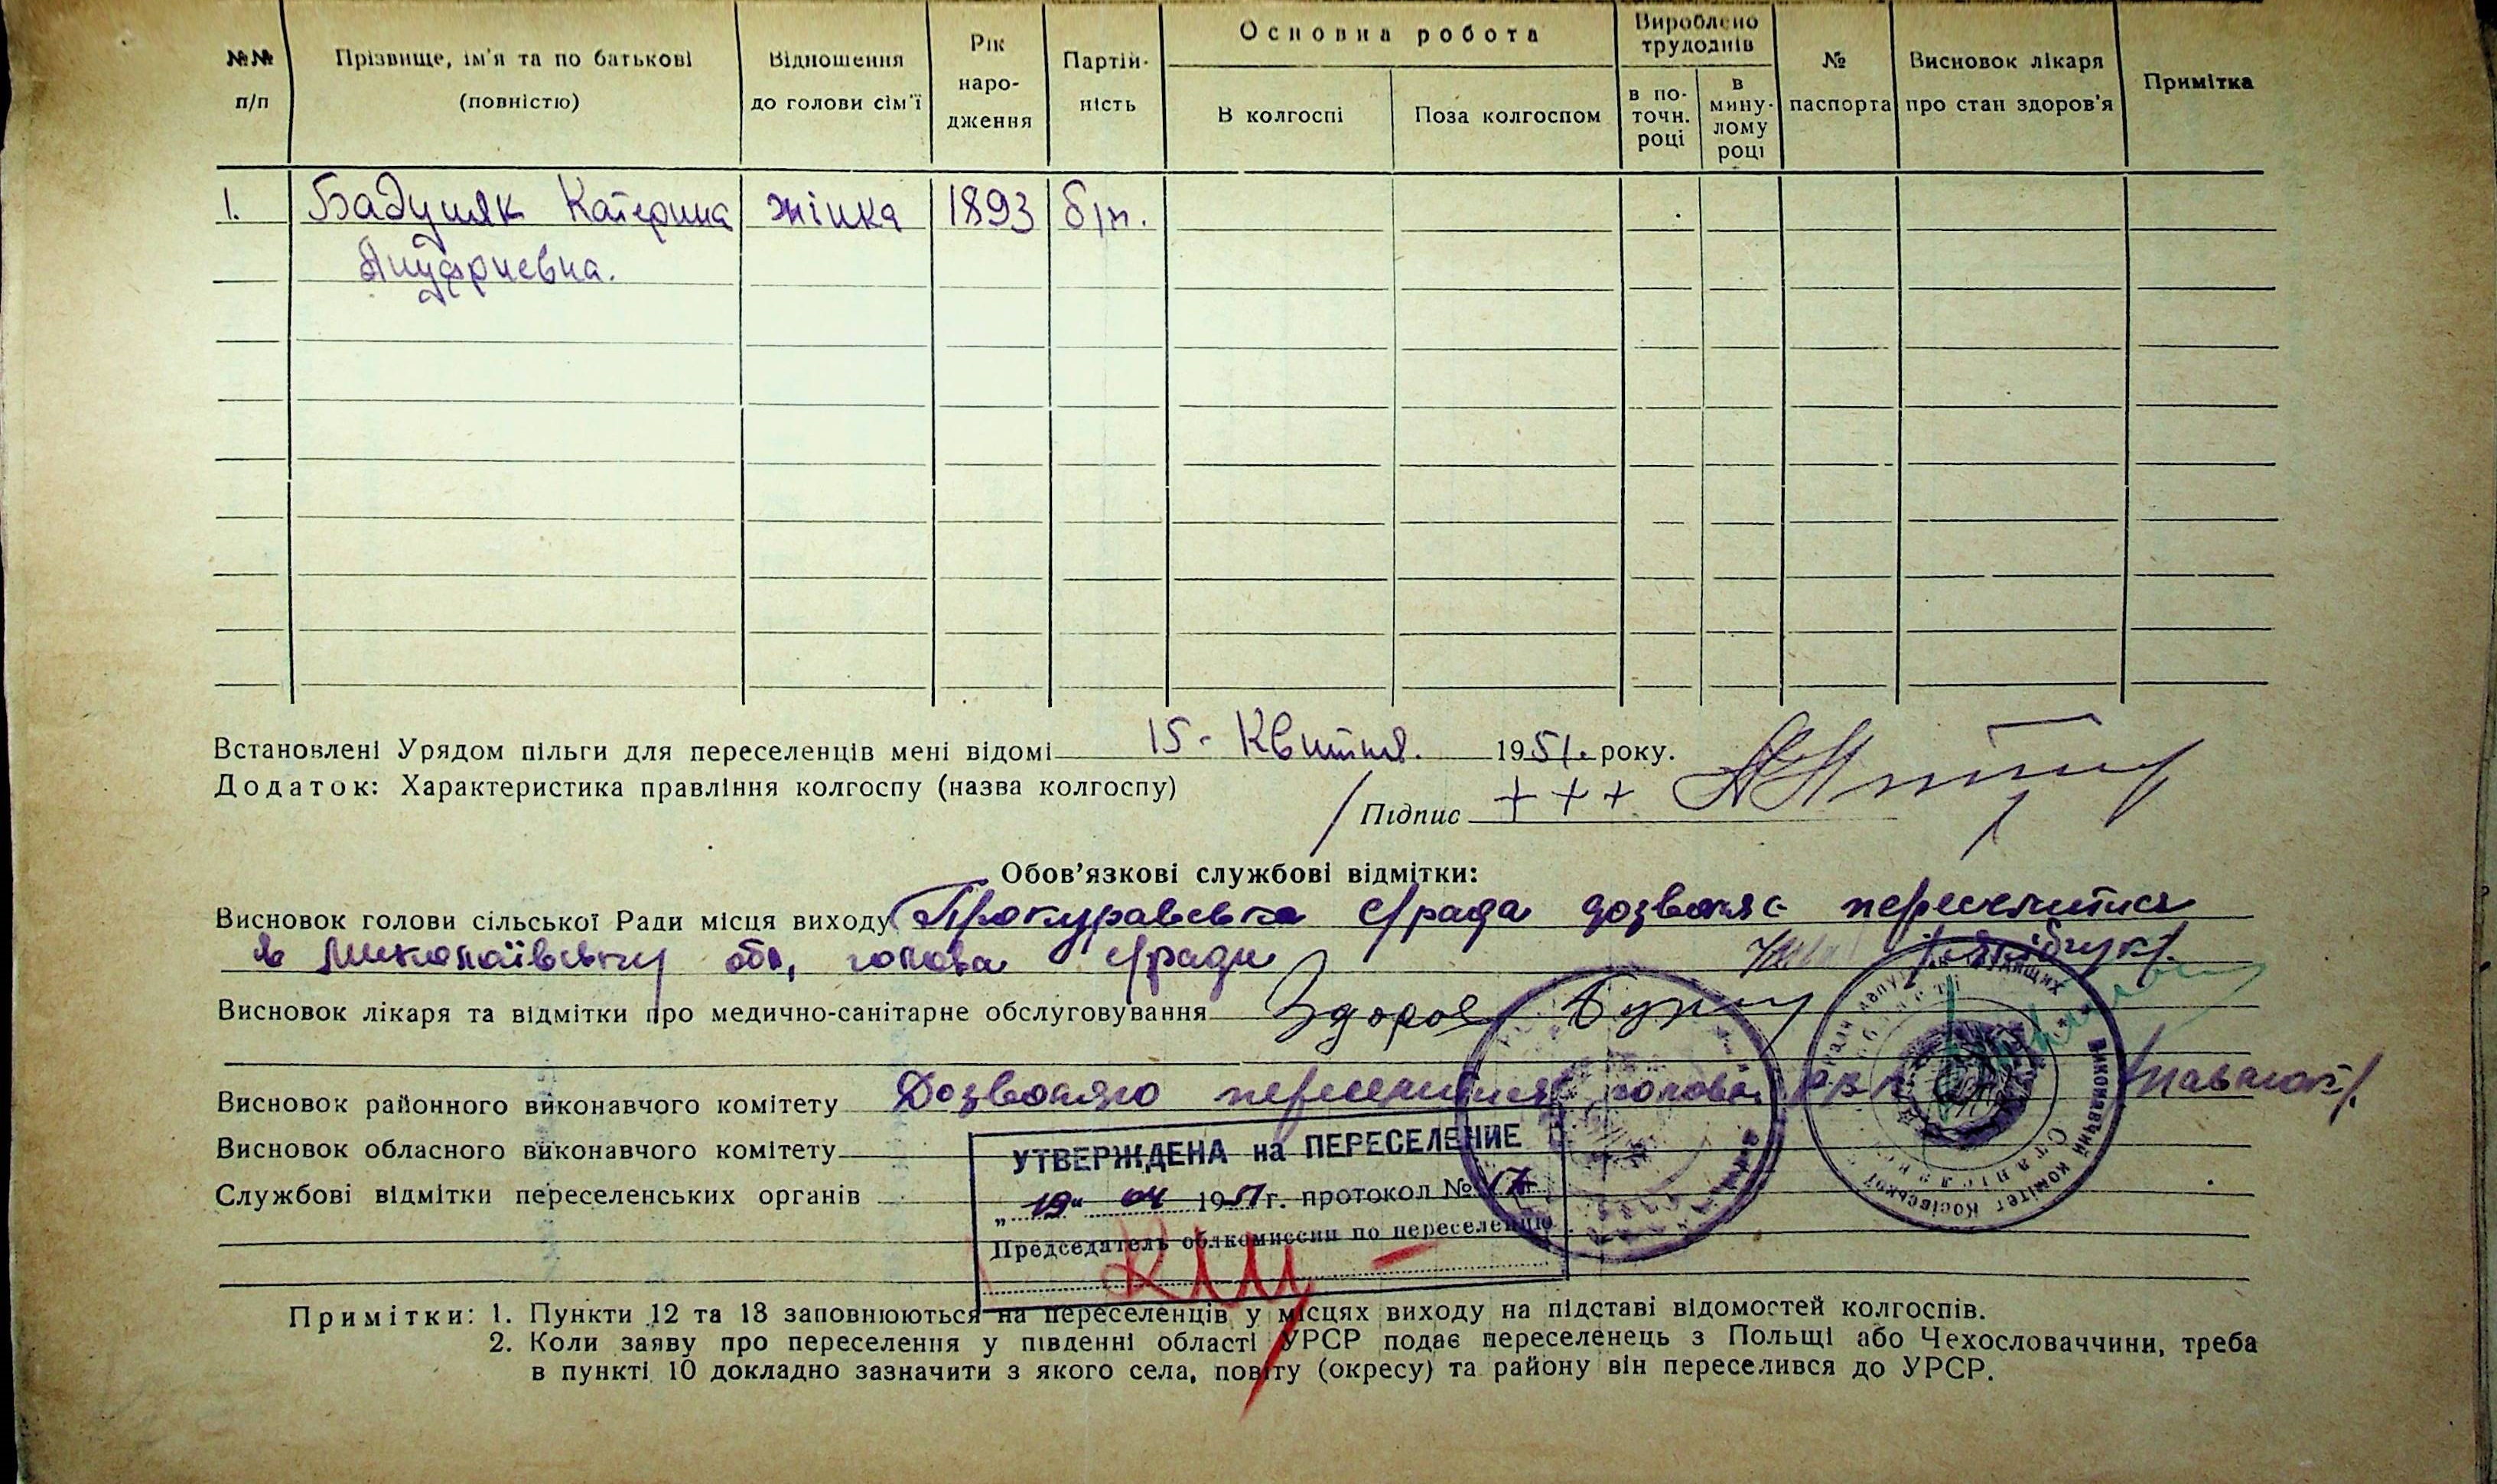 №№ п/п
Прізвище, ім'я та по батькові (повністю)
Відношення до голови сім'ї
Рік народження
Партійність
Основна робота
В колгоспі
Поза колгоспом
Вироблено трудоднів
в поточн. році
в минулому році
№ паспорта
Висновок лікаря про стан здоров'я
Примітка
1. Бадуляк Катерина жінка 1893 б/п.
Ануфриевна.
Встановлені Урядом пільги для переселенців мені відомі 15. Квітня. 1951. року.
Додаток: Характеристика правління колгоспу (назва колгоспу)
Підпис + + +
Обов'язкові службові відмітки:
Висновок голови сільської Ради місця виходу Прокуравська с/рада дозволяє переселитися
в Миколаївську обл, голова с/ради
Висновок лікаря та відмітки про медично-санітарне обслуговування Здоров
Висновок районного виконавчого комітету Дозволяю переселитися голова
Висновок обласного виконавчого комітету
Службові відмітки переселенських органів
УТВЕРЖДЕНА на ПЕРЕСЕЛЕНИЕ
„19“ 04 1951 г. протокол № 17
Председатель облкомиссии по переселению
Виконавчий комітет Косівської
Примітки: 1. Пункти 12 та 13 заповнюються на переселенців у місцях виходу на підставі відомостей колгоспів.
2. Коли заяву про переселення у південні області УРСР подає переселенець з Польщі або Чехословаччини, треба
в пункті 10 докладно зазначити з якого села, повіту (окресу) та району він переселився до УРСР.